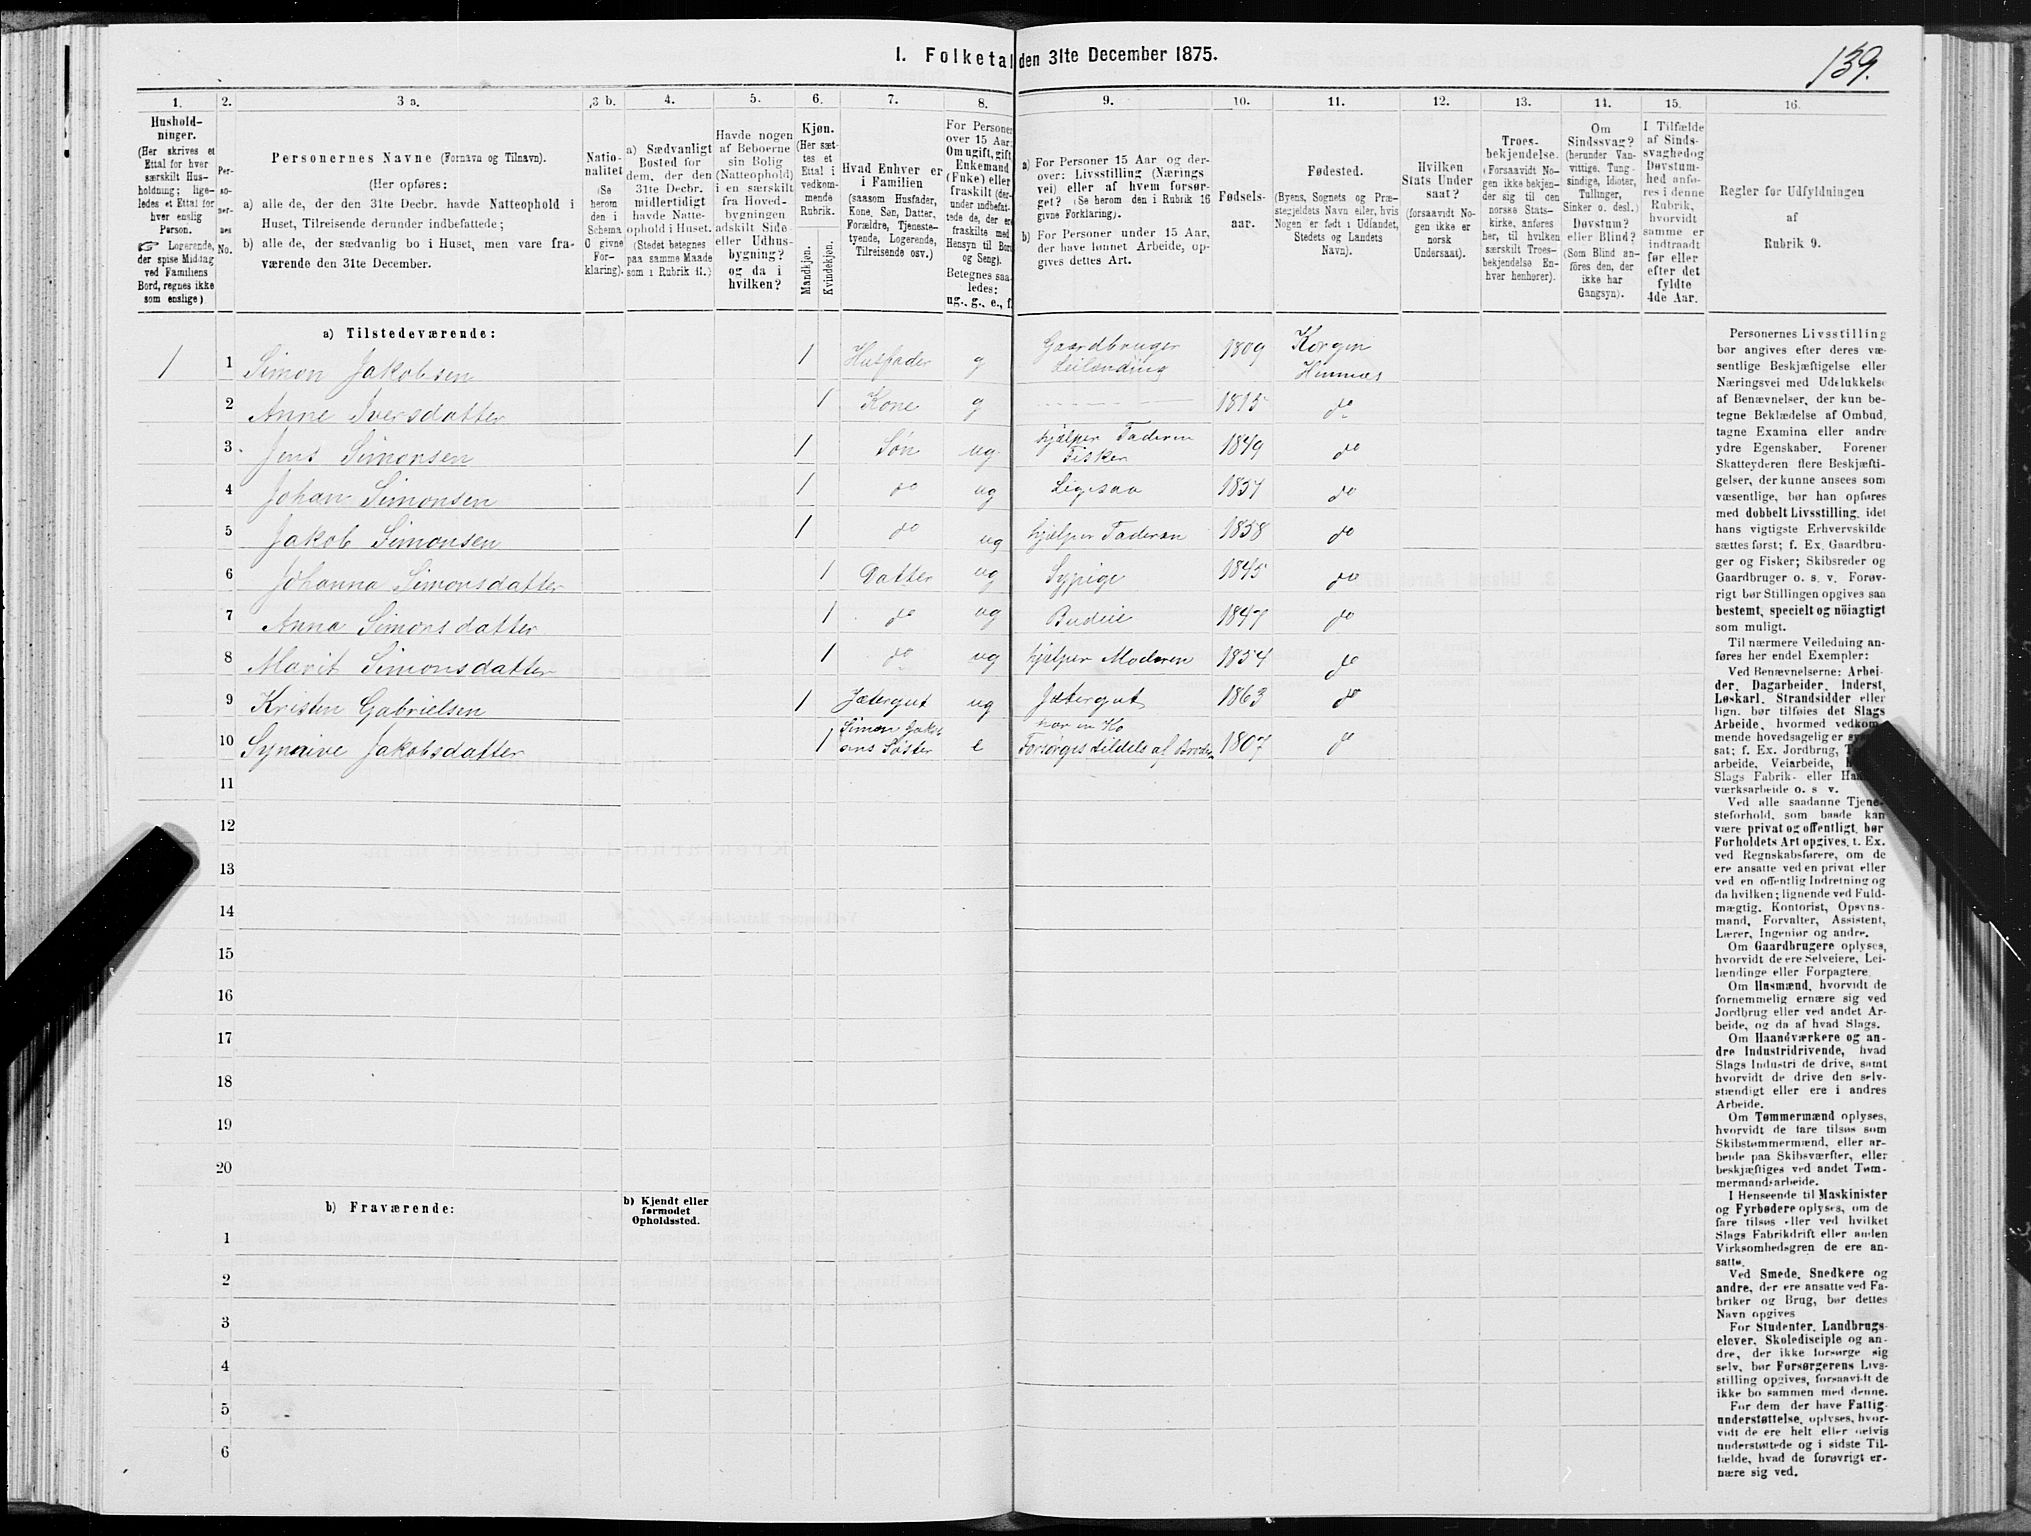 139.
I. Folketal den 31te December 1875.
1. 2. 3 a. 3 b. 4. 5. 6. 7. 8. 9. 10. 11. 12. 13. 14. 15. 16.
Hushold-
ninger.
(Her skrives et
Ettal for hver
særskilt Hus-
holdning; lige-
ledes et Ettal for
hver enslig
Person.
☞ Logerende,
der spise Middag
ved Familiens
Bord, regnes ikke
som enslige)
Per-
so-
ner-
nes
No.
Personernes Navne (Fornavn og Tilnavn).
(Her opføres:
a) alle de, der den 31te Decbr. havde Natteophold i
Huset, Tilreisende derunder indbefattede;
b) alle de, der sædvanlig bo i Huset, men vare fra-
værende den 31te December.
Natio-
nalitet
(Se
herom
den i
Schema
O givne
For-
klaring).
a) Sædvanligt
Bosted for
dem, der den
31te Decbr.
midlertidigt
havde Natte-
ophold i Huset.
(Stedet betegnes
paa samme Maade
som i Rubrik 11.)
Havde nogen
af Beboerne
sin Bolig
(Natteophold)
i en særskilt
fra Hoved-
bygningen
adskilt Side-
eller Udhus-
bygning?
og da i
hvilken?
Kjøn.
(Her sæt-
tes et
Ettal i
vedkom-
mende
Rubrik.
Mandkjøn.
Kvindekjøn.
Hvad Enhver er
i Familien
(saasom Husfader,
Kone, Søn, Datter,
Forældre, Tjeneste-
tyende, Logerende,
Tilreisende osv.)
For Personer
over 15 Aar:
Om ugift, gift
Enkemand
(Enke) eller
fraskilt (der-
under indbefat-
tede de, der ere
fraskilte med
Hensyn til Bord
og Seng).
Betegnes saa-
ledes:
ug., g., e., f.
a) For Personer 15 Aar og der-
over: Livsstilling (Nærings
vei) eller af hvem forsør-
get? (Se herom den i Rubrik 16
givne Forklaring).
b) For Personer under 15 Aar,
der have lønnet Arbeide, op-
gives dettes Art.
Fødsels-
aar.
Fødested.
(Byens, Sognets og Præ-
stegjeldets Navn eller, hvis
Nogen er født i Udlandet,
Stedets og Landets
Navn).
Hvilken
Stats Under
saat?
(forsaavidt No-
gen ikke er
norsk
Undersaat).
Troes-
bekjendelse.
(Forsaavidt No-
gen ikke bekjen-
der sig til den
norske Stats-
kirke, anføres
her, til hvilken
særskilt Troes-
bekjendelse En-
hver henhører).
Om
Sindssvag?
(herunder Van-
vittige, Tung-
sindige, Idioter,
Tullinger,
Sinker o. desl.)
Døvstum?
eller Blind?
(Som Blind an-
føres den, der
ikke har
Gangsyn).
I Tilfælde
af Sinds-
svaghed og
Døvstum-
hed anfø-
res i denne
Rubrik,
hvorvidt
samme er
indtraadt
før eller
efter det
fyldte
4de Aar.
Regler for Udfyldningen
af
Rubrik 9.
a) Tilstedeværende:
1 1 Simon Jakobsen 1 Husfader g Gaardbruger Leilænding 1809 Korgen Hemnæs
2 Anne Iversdatter 1 Kone g 1815 do
3 Jens Simonsen 1 Søn ug hjælper Faderen Fisker 1849 do
4 Johan Simonsen 1 do ug Ligesaa 1851 do
5 Jakob Simonsen 1 do ug hjælper Faderen 1858 do
6 Johanna Simonsdatter 1 Datter ug Sypige 1845 do
7 Anna Simonsdatter 1 do ug Budeie 1847 do
8 Marit Simonsdatter 1 do ug hjælper Moderen 1854 do
9 Kristen Gabrielsen 1 Jætergut ug Jætergut 1863 do
10 Synnive Jakobsdatter 1 Simon Jakobsens Søster e har en Ko Forsørges tildels af Broder 1807 do
11
12
13
14
15
16
17
18
19
20
b) Fraværende:
b) Kjendt eller
formodet
Opholdssted.
1
2
3
4
5
6
Personernes Livsstilling
bør angives efter deres væ-
sentlige Beskjæftigelse eller
Næringsvei med Udelukkelse
af Benævnelser, der kun be-
tegne Beklædelse af Ombud,
tagne Examina eller andre
ydre Egenskaber. Forener
Skatteyderen flere Beskjæfti-
gelser, der kunne ansees som
væsentlige, bør han opføres
med dobbelt Livsstilling, idet
hans vigtigste Erhvervskilde
sættes først; f. Ex. Gaardbru-
ger og Fisker; Skibsreder og
Gaardbruger o. s. v. Forøv-
rigt bør Stillingen opgives saa
bestemt, specielt og nöiagtigt
som muligt.
Til nærmere Veiledning an-
føres her endel Exempler:
Ved Benævnelserne: Arbei-
der, Dagarbeider, Inderst,
Løskarl, Strandsidder eller
lign. bør tilføies det Slags
Arbeide, hvormed vedkom-
mende hovedsagelig er
sat; f. Ex. Jordbrug,
arbeide, Veiarbeide,
Slags Fabrik- eller Haand-
værksarbeide o. s v.
Ved alle saadanne Tjene-
steforhold, som baade kan
være privat og offentligt, bør
Forholdets Art opgives, t. Ex.
ved Regnskabsførere, om de
ere ansatte ved en privat eller
ved en offentlig Indretning og
da hvilken; lignende ved Fuld-
mægtig, Kontorist, Opsyns-
mand, Forvalter, Assistent,
Lærer, Ingeniør og andre.
Om Gaardbrugere oplyses,
hvorvidt de ere Selveiere, Lei-
lændinge eller Forpagtere.
Om Husmænd, hvorvidt de
fornemmelig ernære sig ved
Jordbrug eller ved andet Ar-
beide, og da af hvad Slags.
Om Haandværkere og an-
dre Industridrivende, hvad
Slags Industri de drive, samt
hvorvidt de drive den selv-
stændigt eller ere i andres
Arbeide.
Om Tømmermænd oplyses,
hvorvidt de fare tilsøs som
Skibstømmermænd, eller ar-
beide paa Skibsværfter, eller
beskjæftiges ved andet Tøm-
mermandsarbeide.
I Henseende til Maskinister
og Fyrbødere oplyses, om de
fare tilsøs eller ved hvilket
Slags Fabrikdrift eller anden
Virksomhedsgren de ere an-
satte.
Ved Smede, Snedkere og
andre, der ere ansatte ved Fa-
briker og Brug, bør dettes
Navn opgives
For Studenter, Landbrugs-
elever, Skoledisciple og an-
dre, der ikke forsørge sig
selv, bør Forsørgerens Livs-
stilling opgives, forsaavidt de
ikke bo sammen med denne.
For dem der have Fattig-
understøttelse, oplyses, hvor-
vidt de ere helt eller delvis
understøttede og i sidste Til-
fælde, hvad de forøvrigt er-
nære sig ved.